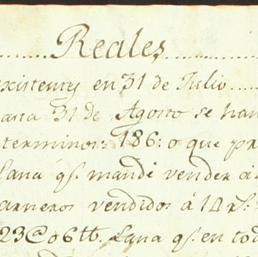 Reales
existentes en 31 de Julio
31 de Agosto se han
terminos: 186: o que pr
Lana qe. mandé vender á
arneros vendidos á 14 rs.
23@ 06 tt. Lana qe. en to